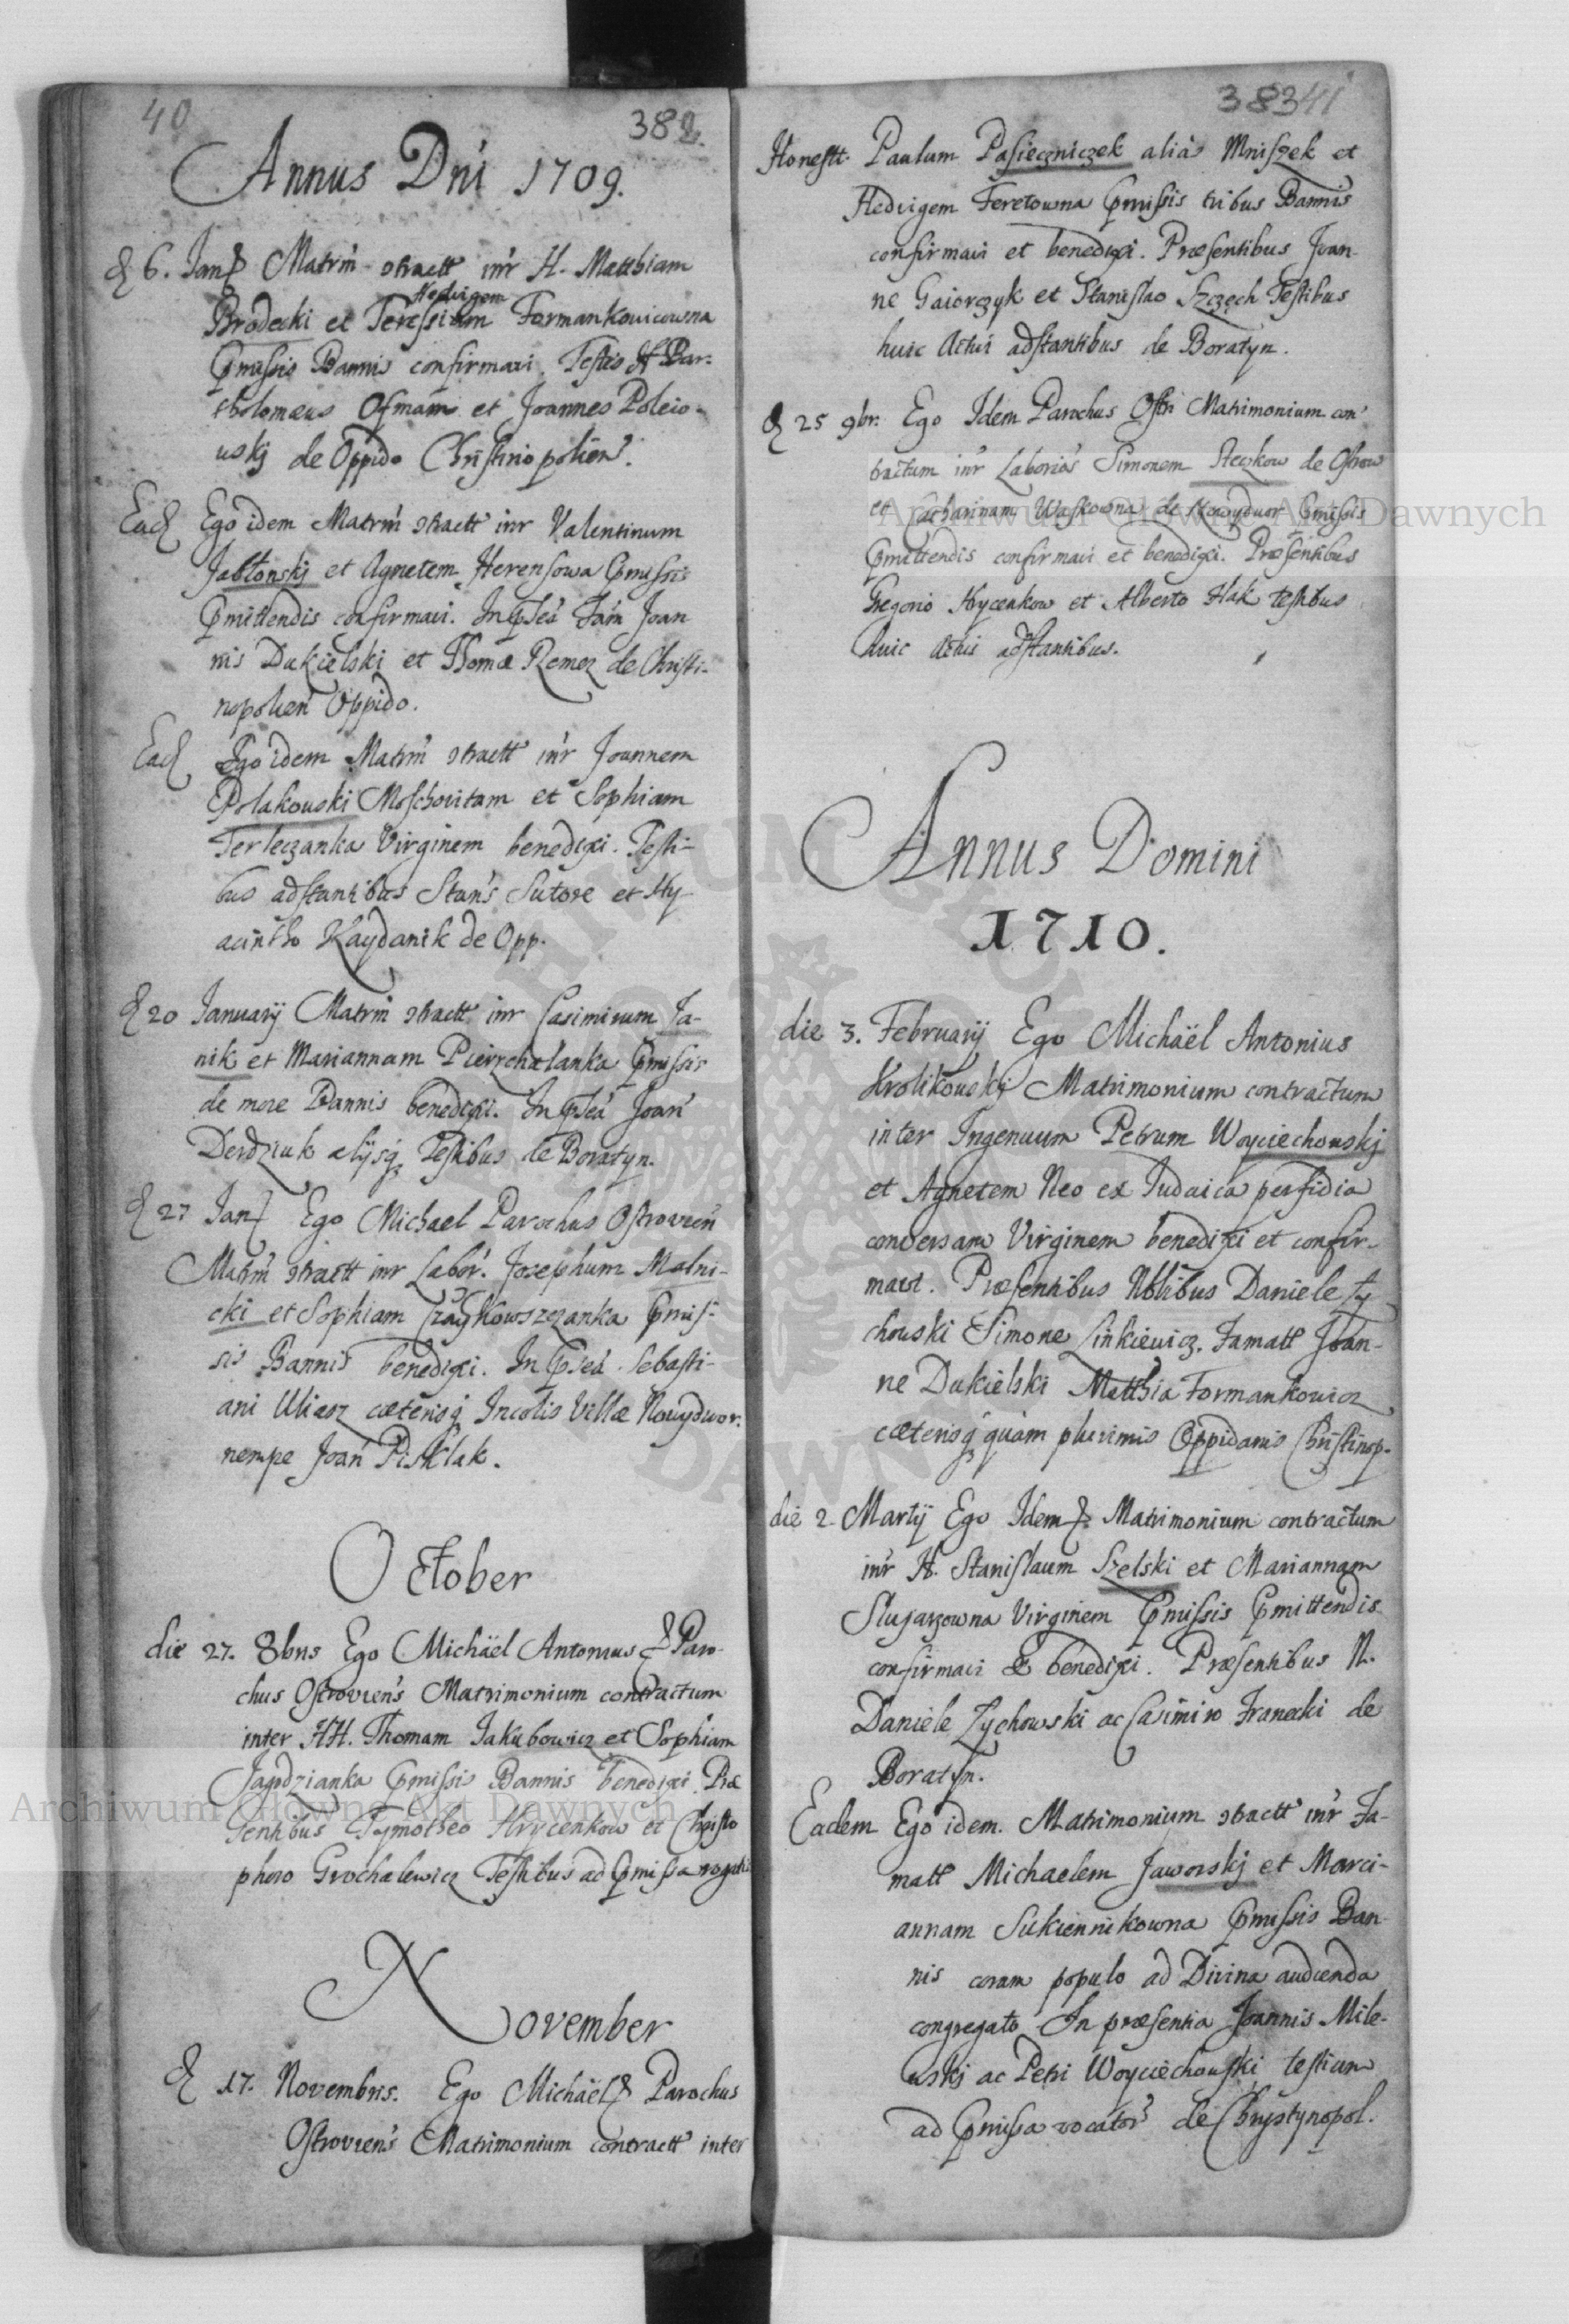 40
382
Annus Dni 1709.
d 6. Jan Matrm stractt inr H. Matthiam
Hedvigem
Brodecki et Teressiam Formankowicowna
Pmissis Bannis confirmavi. Testes H Bar-
tholomæus Ofmam et Joannes Poleio-
uskj de Oppido Christinopolien.
Ead Ego idem Matrm stractt inr Valentinum
Jabłonskj et Agnetem Herensowa Pmissis
Pmittendis confirmavi. In pseā Fam Joan
nis Dukielski et Thomæ Remez de Christi-
nopolien Oppido.
Ead Ego idem Matrm stractt inr Joannem
Polakouski Moschovitam et Sophiam
Terleczanka Virginem benedixi. Testi-
bus adstantibus Stans Sutore et Hy-
acintho Kaydanik de Opp.
d 20 Januarij Matrm stractt inr Casimirum Ja-
nik et Mariannam Pierzchalanka Pmissis
de more Bannis benedixi. In pseā Joan
Derdziuk alijsq Testibus de Boratyn.
d 27 Jan Ego Michael Parochus Ostrovien
Matrm stractt inr Labor. Josephum Malni-
cki et Sophiam Czaykowszczanka Pmis-
sis Bannis benedixi. In pseā Sebasti-
ani Uliasz cæterisq Incolis Villæ Nowydwor.
nempe Joan Pisklak.
October
die 27. 8bris Ego Michäel Antonius Paro-
chus Ostroviens Matrimonium contractum
inter HH. Thomam Jakubowicz et Sophiam
Jagodzianka Pmissis Bannis benedixi. Præ
sentibus Tymotheo Hrycenkow et Christo
phoro Grochalewicz Testibus ad Pmissa rogatis
November
d 17. Novembris. Ego Michäel Parochus
Ostroviens Matrimonium contractt inter
38341
Honestt. Paulum Pasieczniczek aliàs Mniszek et
Hedvigem Feretowna Pmissis tribus Bannis
confirmavi et benedixi. Præsentibus Joan-
ne Gaiorczyk et Stanislao Szczęch Testibus
huic Actui adstantibus de Boratyn.
d 25 9br. Ego Idem Parochus Ostri Matrimonium con-
tractum inr Laborios Simonem Steczkow de Ostrow
et Catharinam Waskowna de Nowydwor Pmissis
Pmittendis confirmavi et benedixi. Præsentibus
Gregorio Hrycenkow et Alberto Hak testibus
huic Actui adstantibus.
Annus Domini
1710.
die 3. Februarij Ego Michäel Antonius
Krolikouski Matrimonium contractum
inter Ingenuum Petrum Woyciechouskj
et Agnetem Neo ex Judaica perfidia
conversam Virginem benedixi et confir-
mavi. Præsentibus Nblibus Daniele Ży
chouski Simone Linkiewicz. Famatt Joan-
ne Dukielski Matthia Formankowicz
cæterisq quàm plurimis Oppidanis Christinop.
die 2. Martij Ego Idem Matrimonium contractum
inr H. Stanislaum Szelski et Mariannam
Slugarzowna Virginem Pmissis Pmittendis
confirmavi & benedixi. Præsentibus N.
Daniele Zychowski ac Casimiro Franecki de
Boratyn.
Eadem Ego idem. Matrimonium stractt inr Fa-
matt Michaelem Jaworskj et Mari-
annam Sukiennikowna Pmissis Ban-
nis coram populo ad Divina audienda
congregato In præsentia Joannis Mile-
uskj ac Petri Woyciechouski testium
ad Pmissa vocator de Chrystynopol.
Archiwum Główne Akt Dawnych
Archiwum Główne Akt Dawnych